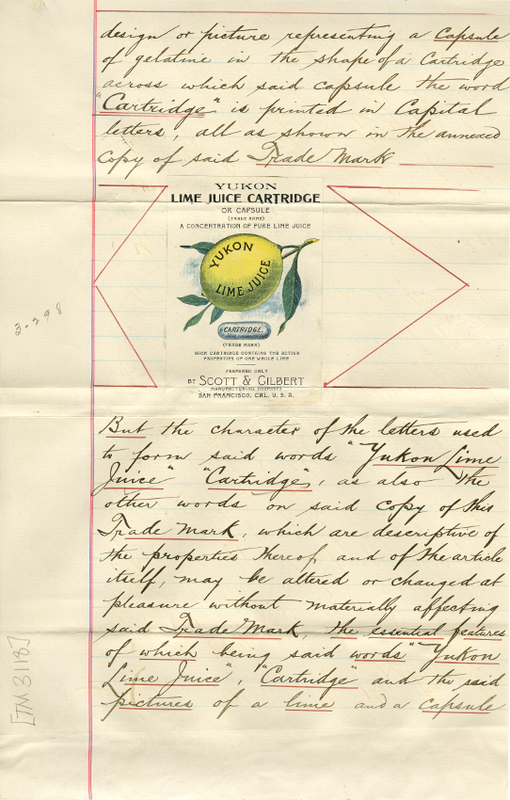 design or picture representing a Capsule
of gelatine in the shape of a Cartridge
across which said capsule the word
"Cartridge" is printed in Capital
letters, all as shown in the annexed
copy of said Trade Mark
YUKON
LIME JUICE CARTRIDGE
OR CAPSULE
(TRADE MARK)
A CONCENTRATION OF PURE LIME JUICE
YUKON
LIME JUICE
CARTRIDGE.
(TRADE MARK)
EACH CARTRIDGE CONTAINS THE ACTIVE
PROPERTIES OF ONE WHOLE LIME
PREPARED ONLY
BY SCOTT & GILBERT
MANUFACTURING CHEMISTS
SAN FRANCISCO, CAL, U. S. A.
3-398
But the character of the letters used
to form said words "Yukon Lime
Juice" "Cartridge", as also the
other words on said copy of this
Trade Mark, which are descriptive of
the properties thereof, and of the article
itself, may be altered or changed at
pleasure without materially affecting
said Trade Mark, the essential features
of which being said words "Yukon
Lime Juice", "Cartridge" and the said
pictures of a lime and a Capsule
[TM 3118]